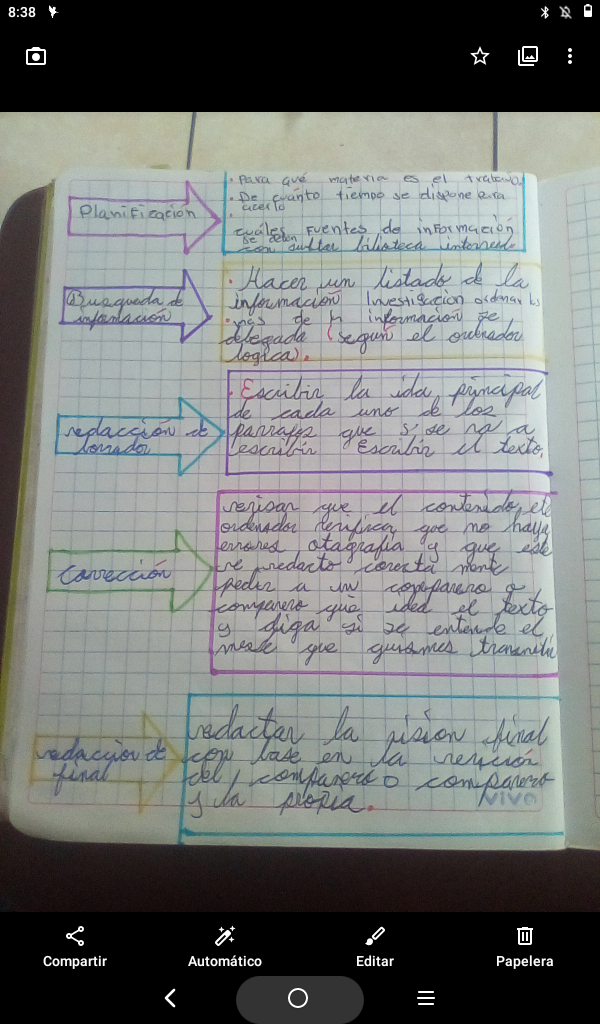 8:38
Planificación
• Para qué materia es el trabajo.
• De cuánto tiempo se dispone para
acerlo
cuáles Fuentes de información
se deben
con sultar bilisteca
Busqueda de
información
• Hacer un listado de la
información Investigación ordenar
de información se
delegada (según el ordenador
logica).
redacción de
borrador
• Escribir la ida principal
de cada uno de los
parrafos que s se va a
escribir Escribir el texto.
Corrección
revisar que el contenido, ete
ordenador verifica que no haya
errores otagrafia y que este
se redacto corecta mente
pedir a un comparero o
comparero que idea el texto
y diga si se entende el
que quisimes transmitir
redaccion de
final
redactar la vision final
con base en la revición
del comparero o comparero
y la propia.
vivo
Compartir
Automático
Editar
Papelera